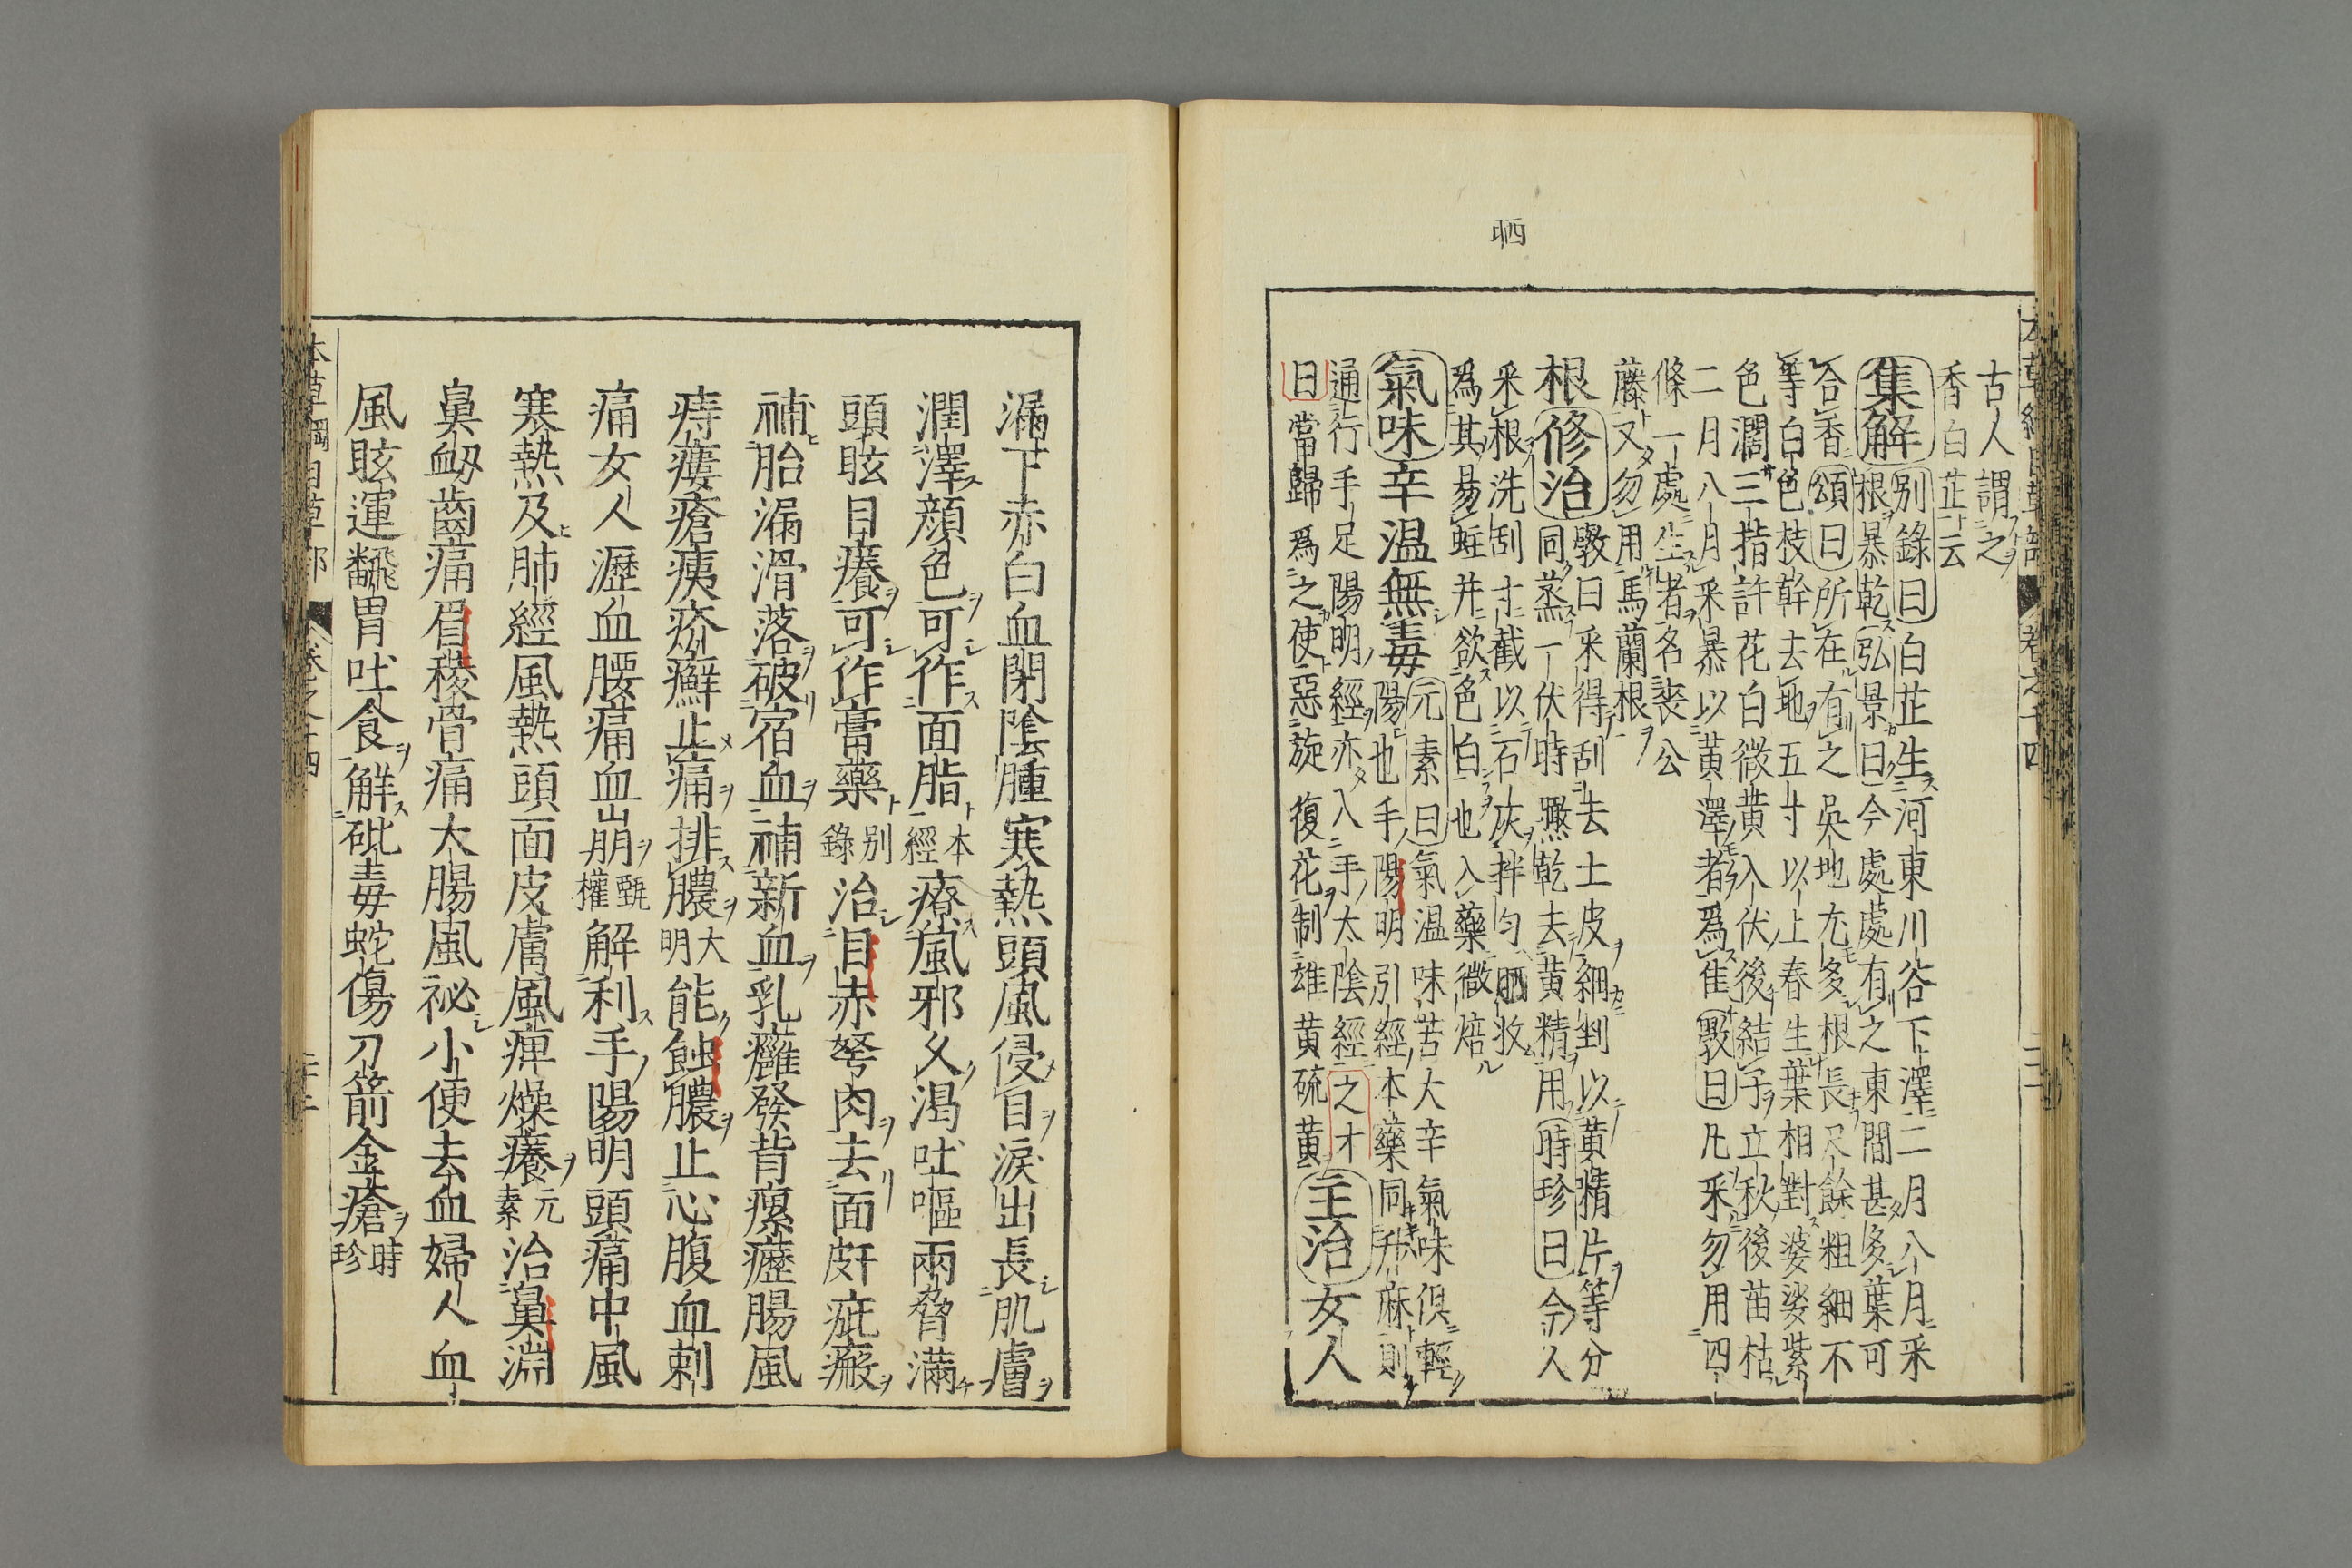 晒
本草綱目草部 卷之十四
古人謂之
香白芷云
集解 別錄曰白芷生河東川谷下澤二月八月采
根暴乾弘景曰今處處有之東間甚多葉可
合香頌曰所在有之吳地尤多根長尺餘粗細不
等白色枝幹去地五寸以上春生葉相對婆娑紫
色濶三指許花白微黃入伏後結子立秋後苗枯
二月八月采暴以黃澤者爲佳斅曰凡采勿用四
條一處生者名喪公
藤又勿用馬蘭根
根 修治 斅曰采得刮去土皮細剉以黃精片等分
同蒸一伏時㬠乾去黃精用時珍曰今人
采根洗刮寸截以石灰拌勻晒收
爲其易蛀并欲色白也入藥微焙
氣味辛温無毒 元素曰氣温味苦大辛氣味俱輕
陽也手陽明引經本藥同升麻則
通行手足陽明經亦入手太陰經之才
曰當歸爲之使惡旋復花制雄黃硫黃 主治 女人
漏下赤白血閉陰腫寒熱頭風侵目淚出長肌膚
潤澤顏色可作面脂 本經 療風邪久渴吐嘔兩脅滿
頭眩目癢可作膏藥 別錄 治目赤努肉去面皯疵瘢
補胎漏滑落破宿血補新血乳癰發背瘰癧腸風
痔瘻瘡痍疥癬止痛排膿 大明 能蝕膿止心腹血刺
痛女人瀝血腰痛血崩 甄權 解利手陽明頭痛中風
寒熱及肺經風熱頭面皮膚風痺燥癢 元素 治鼻淵
鼻衄齒痛眉稜骨痛大腸風祕小便去血婦人血
風眩運飜胃吐食解砒毒蛇傷刀箭金瘡 時珍
本草綱目草部 卷之十四